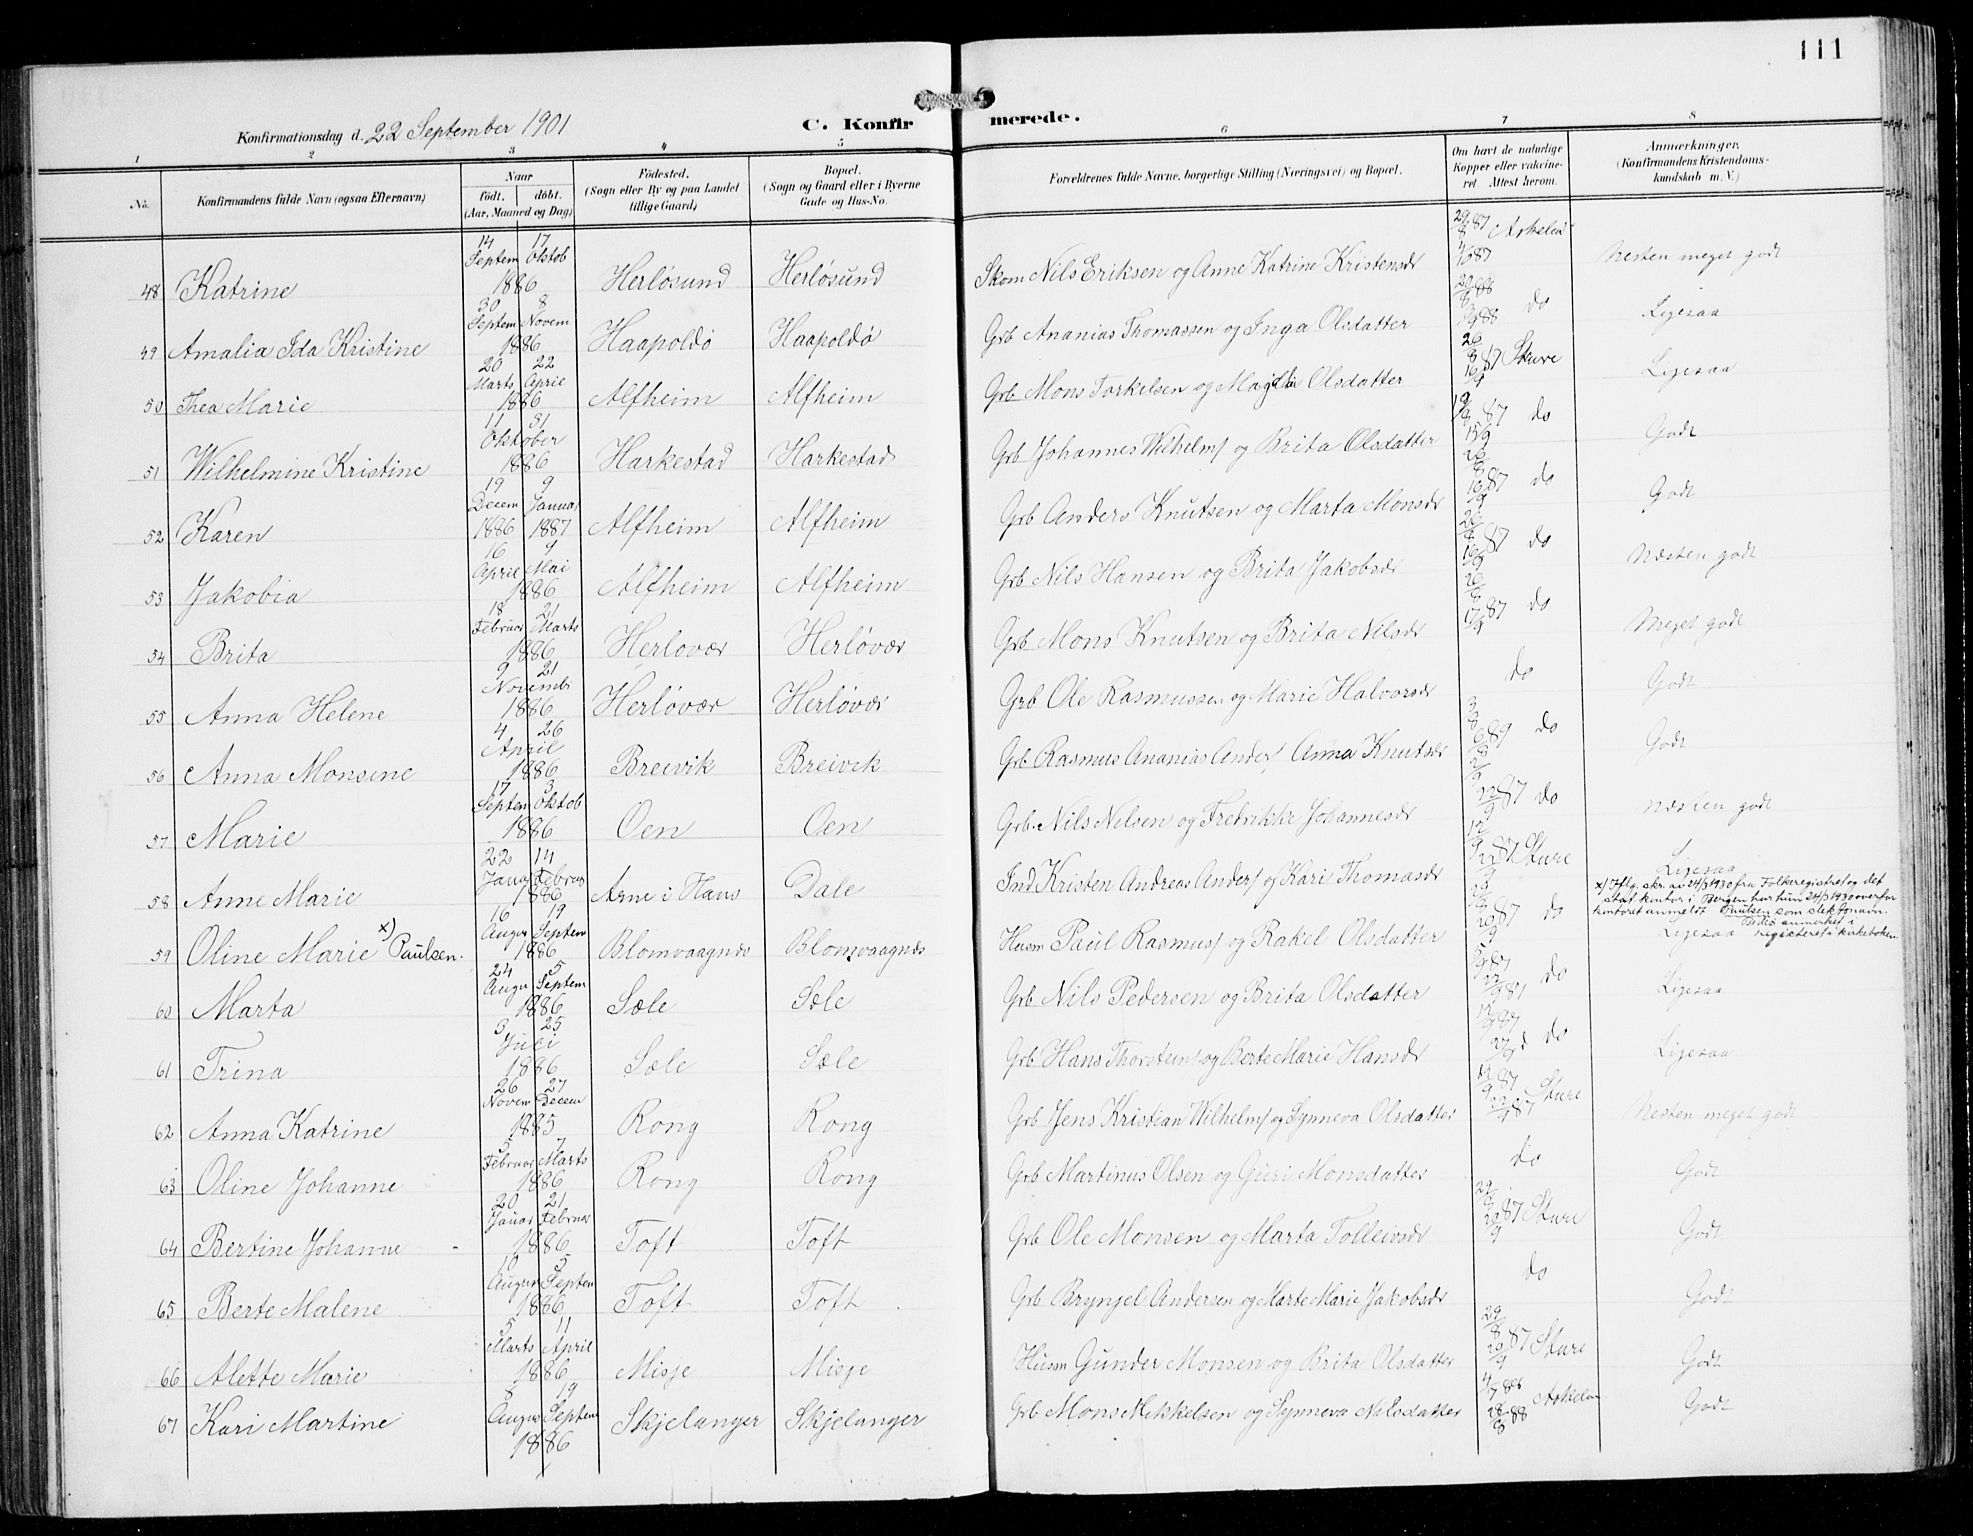 111
Konfirmationsdag d. 22 September 1901
C. Konfirmerede.
1 2 3 4 5 6 7 8
No. Konfirmandens fulde Navn (ogsaa Efternavn) Naar født. døbt. (Aar, Maaned og Dag) Fødested. (Sogn eller By og paa Landet tillige Gaard) Bopæl. (Sogn og Gaard eller i Byerne Gade og Hus-No. Forældrenes fulde Navne, borgerlige Stilling (Næringsvei) og Bopæl. Om havt de naturlige Kopper eller vakcineret Attest herom. Anmærkninger. (Konfirmandens Kristendomskundskab m. V.)
48 Katrine 14 Septem 17 Oktob 1886 Herløsund Herløsund Skom Nils Eriksen og Anne Katrine Kristensdr 29/8 87 Askeland Nesten meget godt
49 Amalia Ida Kristine 30 Septem 8 Novem 1886 Haapoldø Haapoldø Grb Ananias Thomassen og Inga Olsdatter do Ligesaa
50 Thea Marie 20 Marts 22 April 1886 Alfheim Alfheim Grb Mons Torkelsen og Magdli Olsdatter 26/8 87 16/9 Sture Ligesaa
51 Wilhelmine Kristine 11 31 Oktober 1886 Harkestad Harkestad Grb Johannes Wilhelms/ og Brita Olsdatter 87 15/9 do Godt
52 Karen 19 Decem 1886 9 Januar 1887 Alfheim Alfheim Grb Anders Knutsen og Marta Monsdr 26/8 87 16/9 do Godt
53 Jakobia 16 April 9 Mai 1886 Alfheim Alfheim Grb Nils Hansen og Brita Jakobsdr 26/8 87 16/9 do Næsten godt
54 Brita 18 Februar 21 Marts 1886 Herlovær Herløvær Grb Mons Knutsen og Brita Nilsdr 26/8 87 17/9 do Meget godt
55 Anna Helene 9 21 Novemb 1886 Herløvær Herløvær Grb Ole Rasmussen og Marie Halvorsdr do Godt
56 Anna Monsine 4 26 April 1886 Breivik Breivik Grb Rasmus Ananias Anders/ Anna Knutsdr 89 do Godt
57 Marie 17 Septem 3 Oktob 1886 Oen Oen Grb. Nils Nilsen og Fredrikke Johannesdr 22/9 87 do Næsten godt
58 Anne Marie 22 Januar 14 Februar 1886 Arne i Haus Dale Ind Kristen Andreas Anders/ og Kari Thomasdr 12/9 87 22/9 Sture Ligesaa
x) Iflg. skr. av 24/3 1930 fra Folkeregistret og det stat. kontor i Bergen har hun 24/3 1930 overfor kontoret anmeldt Paulsen som slektsnavn. Dette anmerket i registeret i kirkeboken
59 Oline Marie x) Paulsen. 16 August 19 Septem 1886 Blomvaagnes Blomvaagnes Husm Paul Rasmus/ og Rakel Olsdatter 87 20/9 do Ligesaa
60 Marta 24 Augu 5 Septem 1886 Sæle Sæle Grb Nils Pedersen og Brita Olsdatter 87 do Ligesaa
61 Trina 3 25 Juli 1886 Sæle Sæle Grb Hans Thorsteins/ og Berte Marie Hansdr 87 do Ligesaa
62 Anna Katrine 26 Novem 27 Decem 1885 Rong Rong Grb Jens Kristian Wilhelms/ og Synneva Olsdatter 12/9 87 22/9 87 Sture Nesten meget godt
63 Oline Johanne 5 Februar 7 Marts 1886 Rong Rong Grb Martinus Olsen og Guri Monsdatter do Godt
64 Bertine Johanne 20 Januar 21 Februar 1886 Toft Toft Grb Ole Monsen og Marta Tolleivsdr 29/8 87 20/9 Sture Godt
65 Berte Malene 10 August 5 Septem 1886 Toft Toft Grb Brynjel Andersen og Marte Marie Jakobsdr do Godt
66 Alette Marie 5 Marts 11 April 1886 Misje Misje Husm Gunder Monsen og Brita Olsdatter 29/8 87 20/9 Sture Godt
67 Kari Martine 8 August 19 Septem 1886 Skjelanger Skjelanger Grb Mons Mikkelsen og Synneva Nilsdatter 88 Askeland Godt